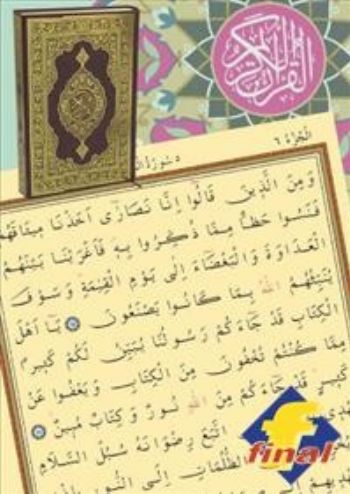 القرآن الكريم
الجزء ٦
سورة
وَمِنَ الَّذِينَ قَالُوا إِنَّا نَصَارَى أَخَذْنَا مِيثَاقَهُمْ
فَنَسُوا حَظًّا مِمَّا ذُكِّرُوا بِهِ فَأَغْرَيْنَا بَيْنَهُمُ
الْعَدَاوَةَ وَالْبَغْضَاءَ إِلَى يَوْمِ الْقِيمَةِ وَسَوْفَ
يُنَبِّئُهُمُ اللَّهُ بِمَا كَانُوا يَصْنَعُونَ يَا أَهْلَ
الْكِتَابِ قَدْ جَاءَكُمْ رَسُولُنَا يُبَيِّنُ لَكُمْ كَثِيرًا
مِمَّا كُنْتُمْ تُخْفُونَ مِنَ الْكِتَابِ وَيَعْفُوا عَنْ
كَثِيرٍ قَدْ جَاءَكُمْ مِنَ اللَّهِ نُورٌ وَكِتَابٌ مُبِينٌ
اتَّبَعَ رِضْوَانَهُ سُبُلَ السَّلَامِ
الظُّلُمَاتِ إِلَى النُّورِ
final